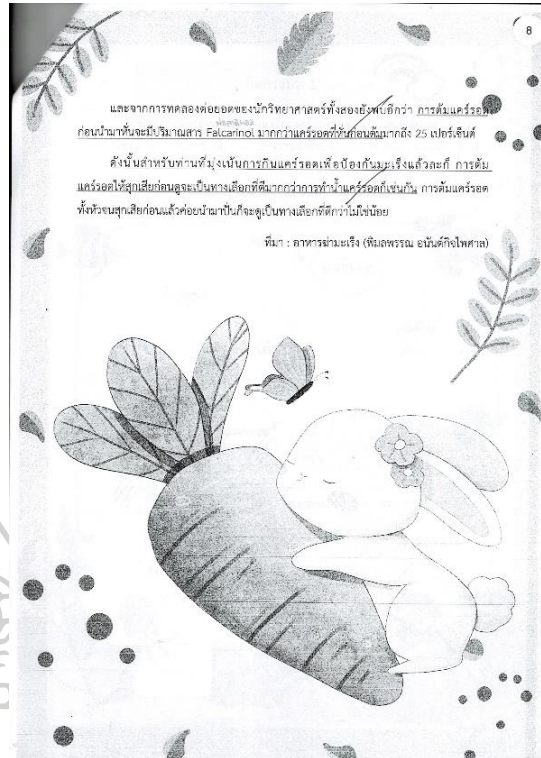 8
และจากการทดลองต่อยอดของนักวิทยาศาสตร์ทั้งสองยังพบอีกว่า การต้มแครรอต
ก่อนนำมาหั่นจะมีปริมาณสาร Falcarinol มากกว่าแครรอตที่หั่นก่อนต้มมากถึง 25 เปอร์เซ็นต์
ดังนั้นสำหรับท่านที่มุ่งเน้นการกินแครรอตเพื่อป้องกันมะเร็งแล้วละก็ การต้ม
แครรอตให้สุกเสียก่อนดูจะเป็นทางเลือกที่ดีมากกว่าการทำน้ำแครรอตก็เช่นกัน การต้มแครรอต
ทั้งหัวจนสุกเสียก่อนแล้วค่อยนำมาปั่นก็จะดูเป็นทางเลือกที่ดีกว่าไม่ใช่น้อย
ที่มา : อาหารฆ่ามะเร็ง (พิมลพรรณ อนันต์กิจไพศาล)